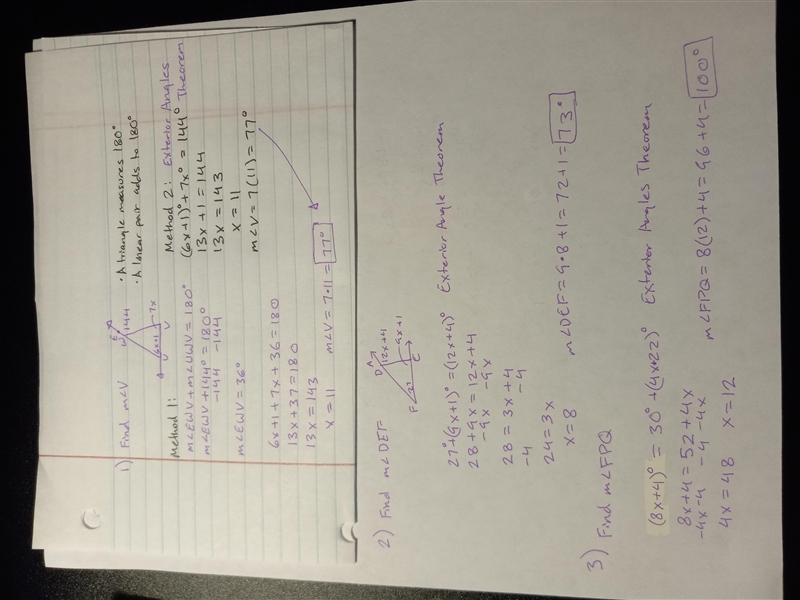 1) Find m∠V
• A triangle measures 180°
• A linear pair adds to 180°
E
W
144
7x
6x+1
U
V
Method 1:
m∠EWV + m∠UWV = 180°
m∠EWV + 144° = 180°
-144 -144
m∠EWV = 36°
6x+1+7x+36=180
13x+37=180
13x=143
x=11
m∠V = 7•11 = 77°
Method 2: Exterior Angles Theorem
(6x+1)° + 7x° = 144°
13x+1=144
13x=143
x=11
m∠V = 7(11) = 77°
2) Find m∠DEF
D
12x+4
9x+1
F
27
27° + (9x+1)° = (12x+4)° Exterior Angle Theorem
28+9x=12x+4
-9x -9x
28=3x+4
-4 -4
24=3x
x=8
m∠DEF = 9•8+1=72+1=73°
3) Find m∠FPQ
(8x+4)° = 30° + (4x+22)° Exterior Angles Theorem
8x+4=52+4x
-4x-4 -4 -4x
4x=48 x=12
m∠FPQ = 8(12)+4=96+4=100°